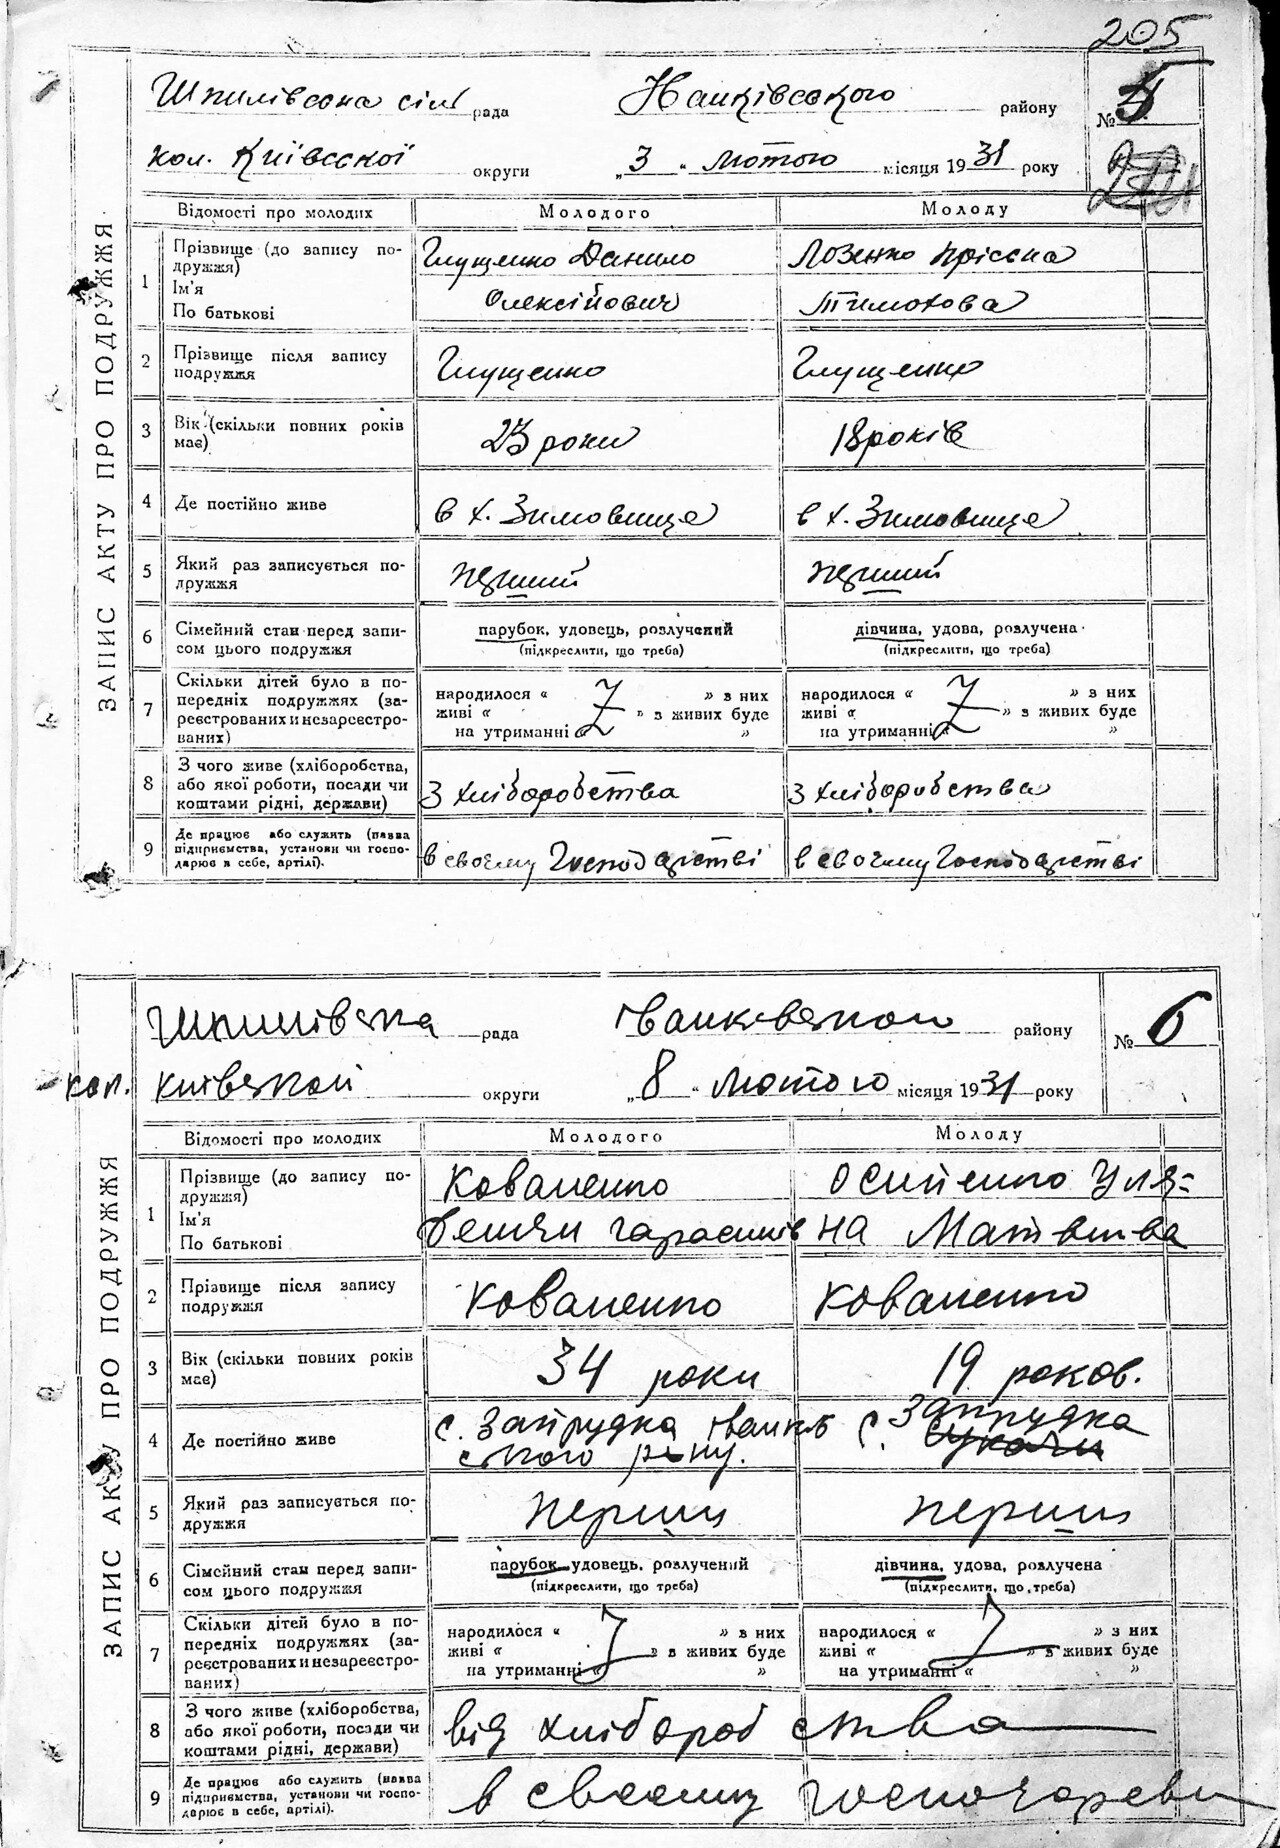 205
ЗАПИС АКТУ ПРО ПОДРУЖЖЯ
Шпилівська сіл рада Иванківського району № 5
кол. Київської округи „3“ лютого місяця 1931 року
Відомості про молодих Молодого Молоду
1 Прізвище (до запису подружжя) Ім'я По батькові
Глущенко Данило Лозенко Пріська
Олексійович Тимохова
2 Прізвище після запису подружжя Глущенко Глущенко
3 Вік (скільки повних років має) 23 роки 18 років
4 Де постійно живе в х. Зимовище в х. Зимовище
5 Який раз записується подружжя перший перший
6 Сімейний стан перед записом цього подружжя парубок, удовець, розлучений дівчина, удова, розлучена
(підкреслити, що треба) (підкреслити, що треба)
7 Скільки дітей було в попередніх подружжях (зареєстрованих и незареєстрованих)
народилося « » з них народилося « » з них
живі « » з живих буде живі « » з живих буде
на утриманні « » на утриманні « »
8 З чого живе (хліборобства, або якої роботи, посади чи коштами рідні, держави) З хліборобства З хліборобства
9 Де працює або служить (назва підприємства, установи чи господарює в себе, артілі). в своєму Господарстві в своєму Господарстві
ЗАПИС АКТУ ПРО ПОДРУЖЖЯ
Шпилівска рада Іванковского району № 6
кол. Київской округи „8“ лютого місяця 1931 року
Відомості про молодих Молодого Молоду
1 Прізвище (до запису подружжя) Ім'я По батькові
Коваленко Осипенко Уля=
Гарасимів на Матвиива
2 Прізвище після запису подружжя Коваленко Коваленко
3 Вік (скільки повних років має) 34 роки 19 роков.
4 Де постійно живе с. Запрудка Іванків с. Запрудка
ського р-ну. Сукачи
5 Який раз записується подружжя перший перший
6 Сімейний стан перед записом цього подружжя парубок, удовець, розлучений дівчина, удова, розлучена
(підкреслити, що треба) (підкреслити, що треба)
7 Скільки дітей було в попередніх подружжях (зареєстрованих и незареєстрованих)
народилося « » з них народилося « » з них
живі « » з живих буде живі « » з живих буде
на утриманні « » на утриманні « »
8 З чого живе (хліборобства, або якої роботи, посади чи коштами рідні, держави) від хліборобства
9 Де працює або служить (назва підприємства, установи чи господарює в себе, артілі). в своєму